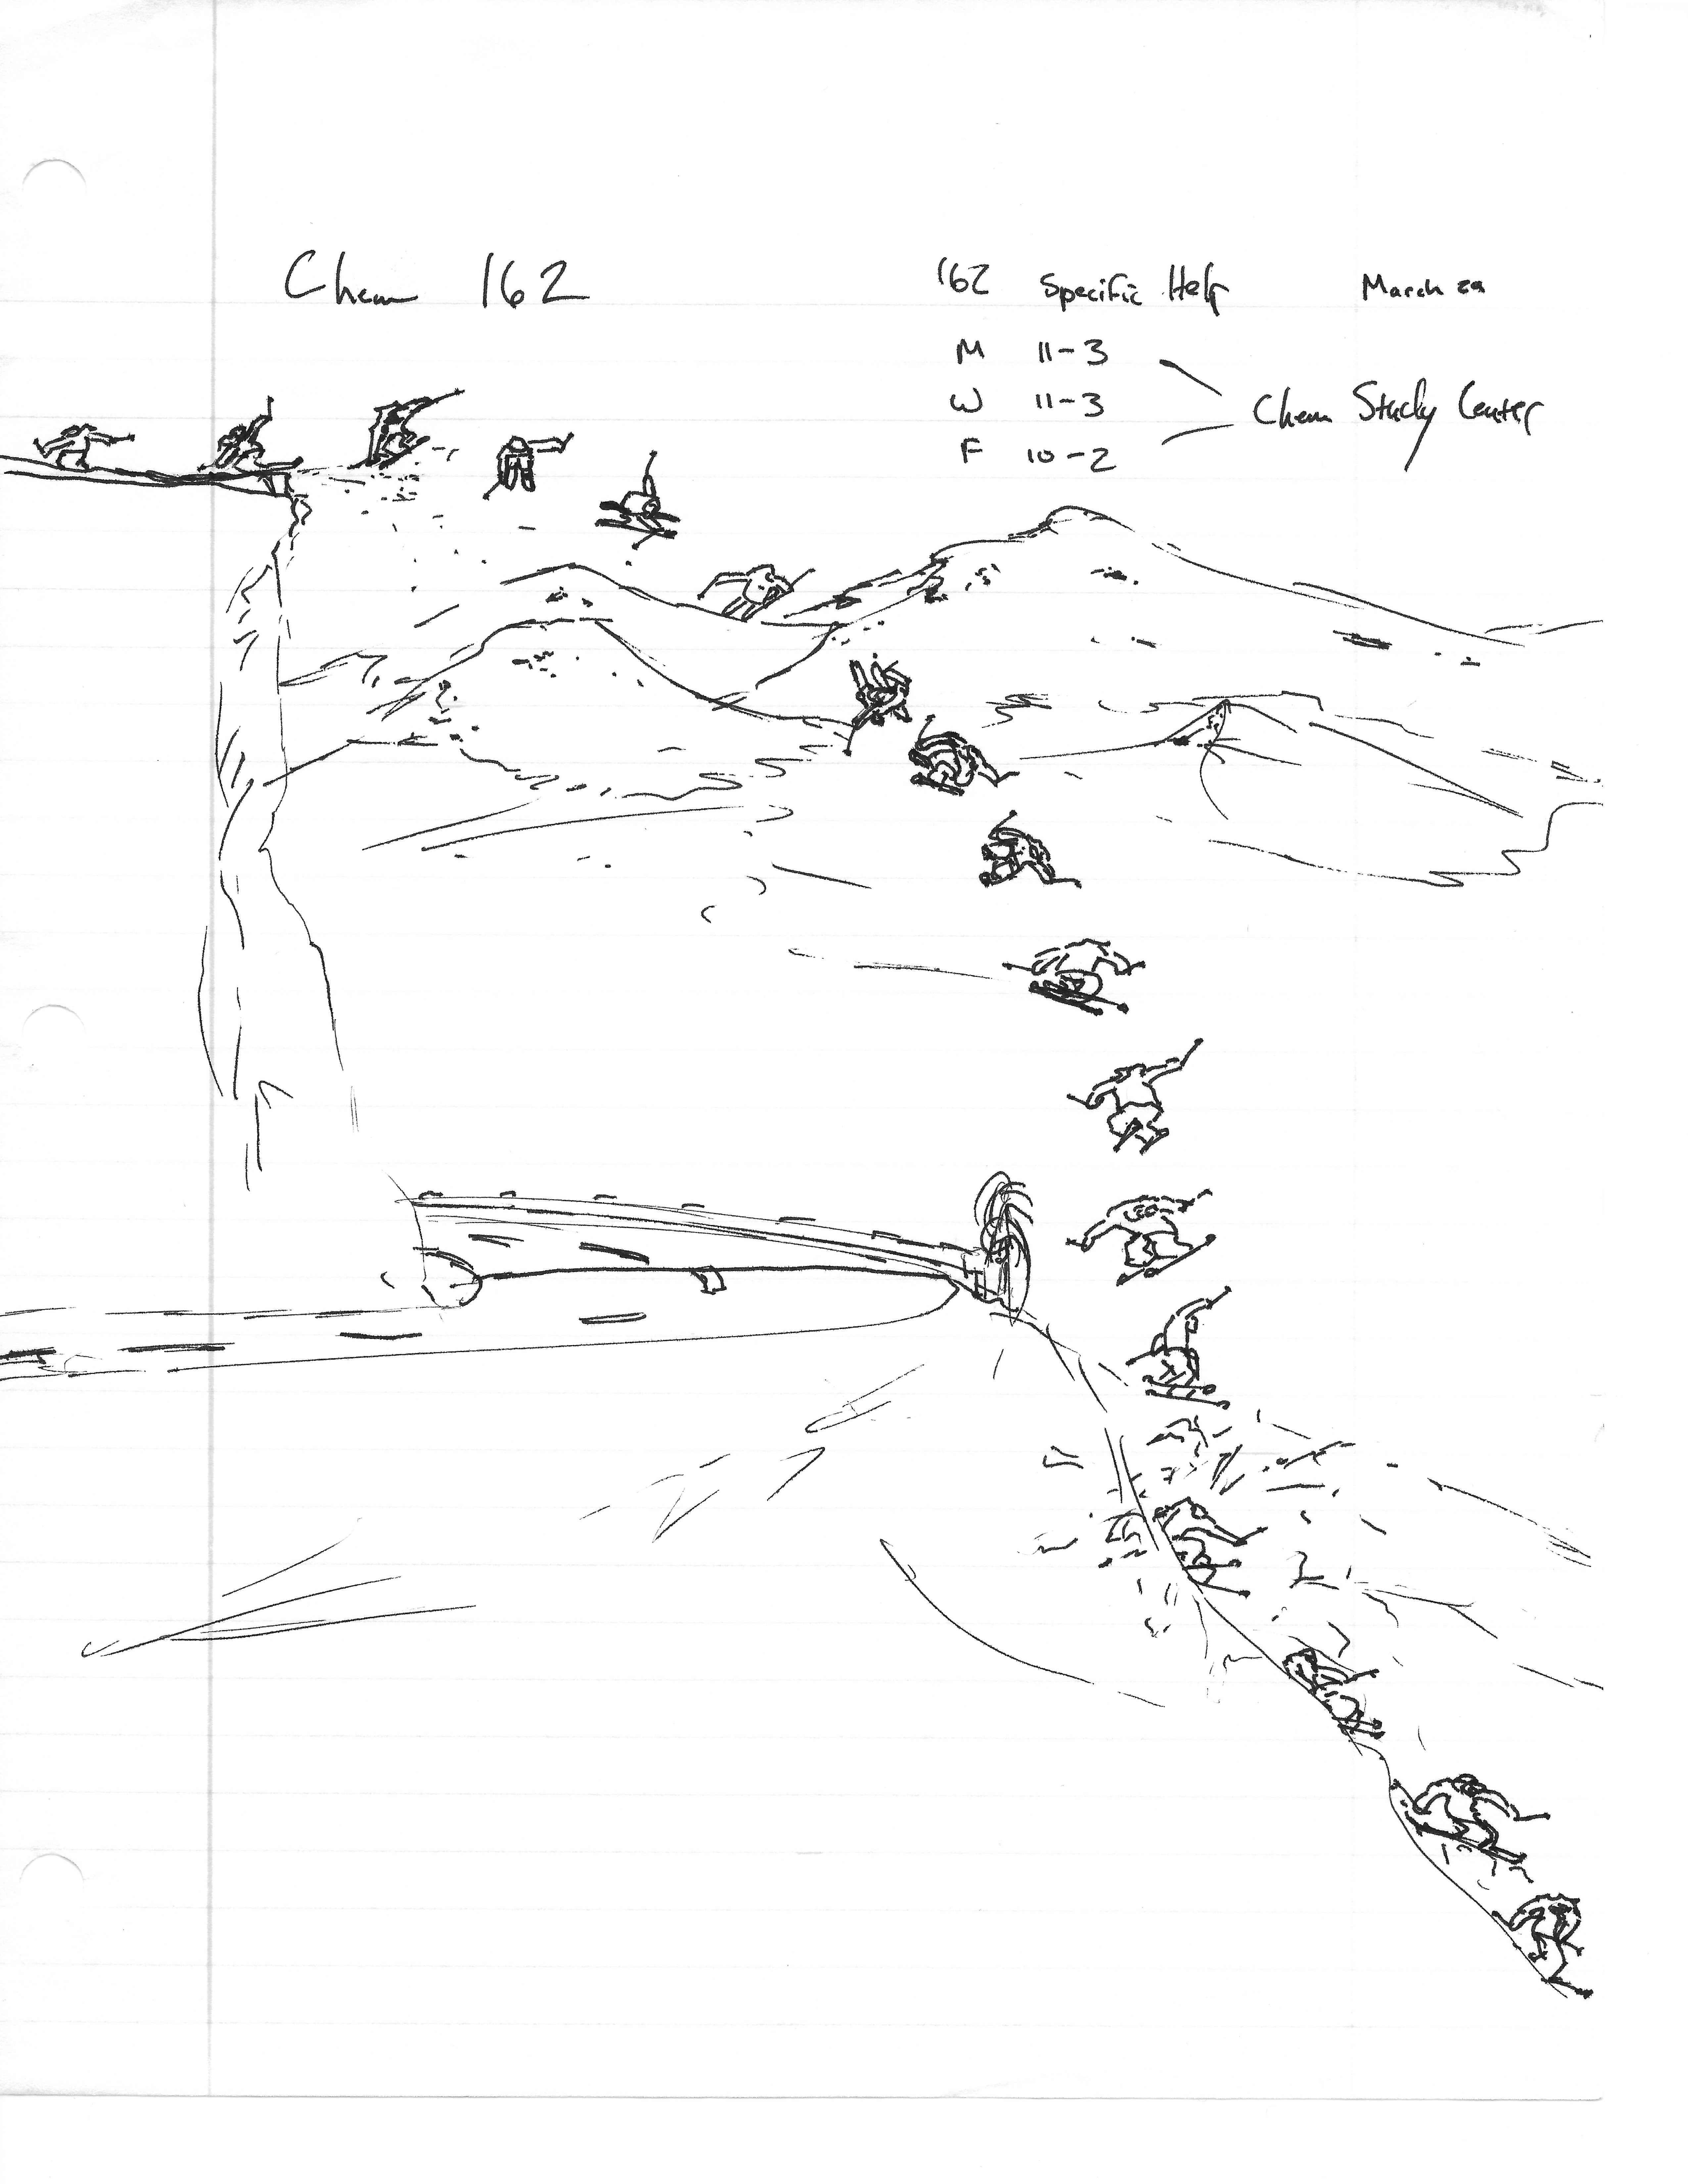 Chem 162
162 Specific Help March 29
M 11-3
W 11-3
Chem Study Center
F 10-2